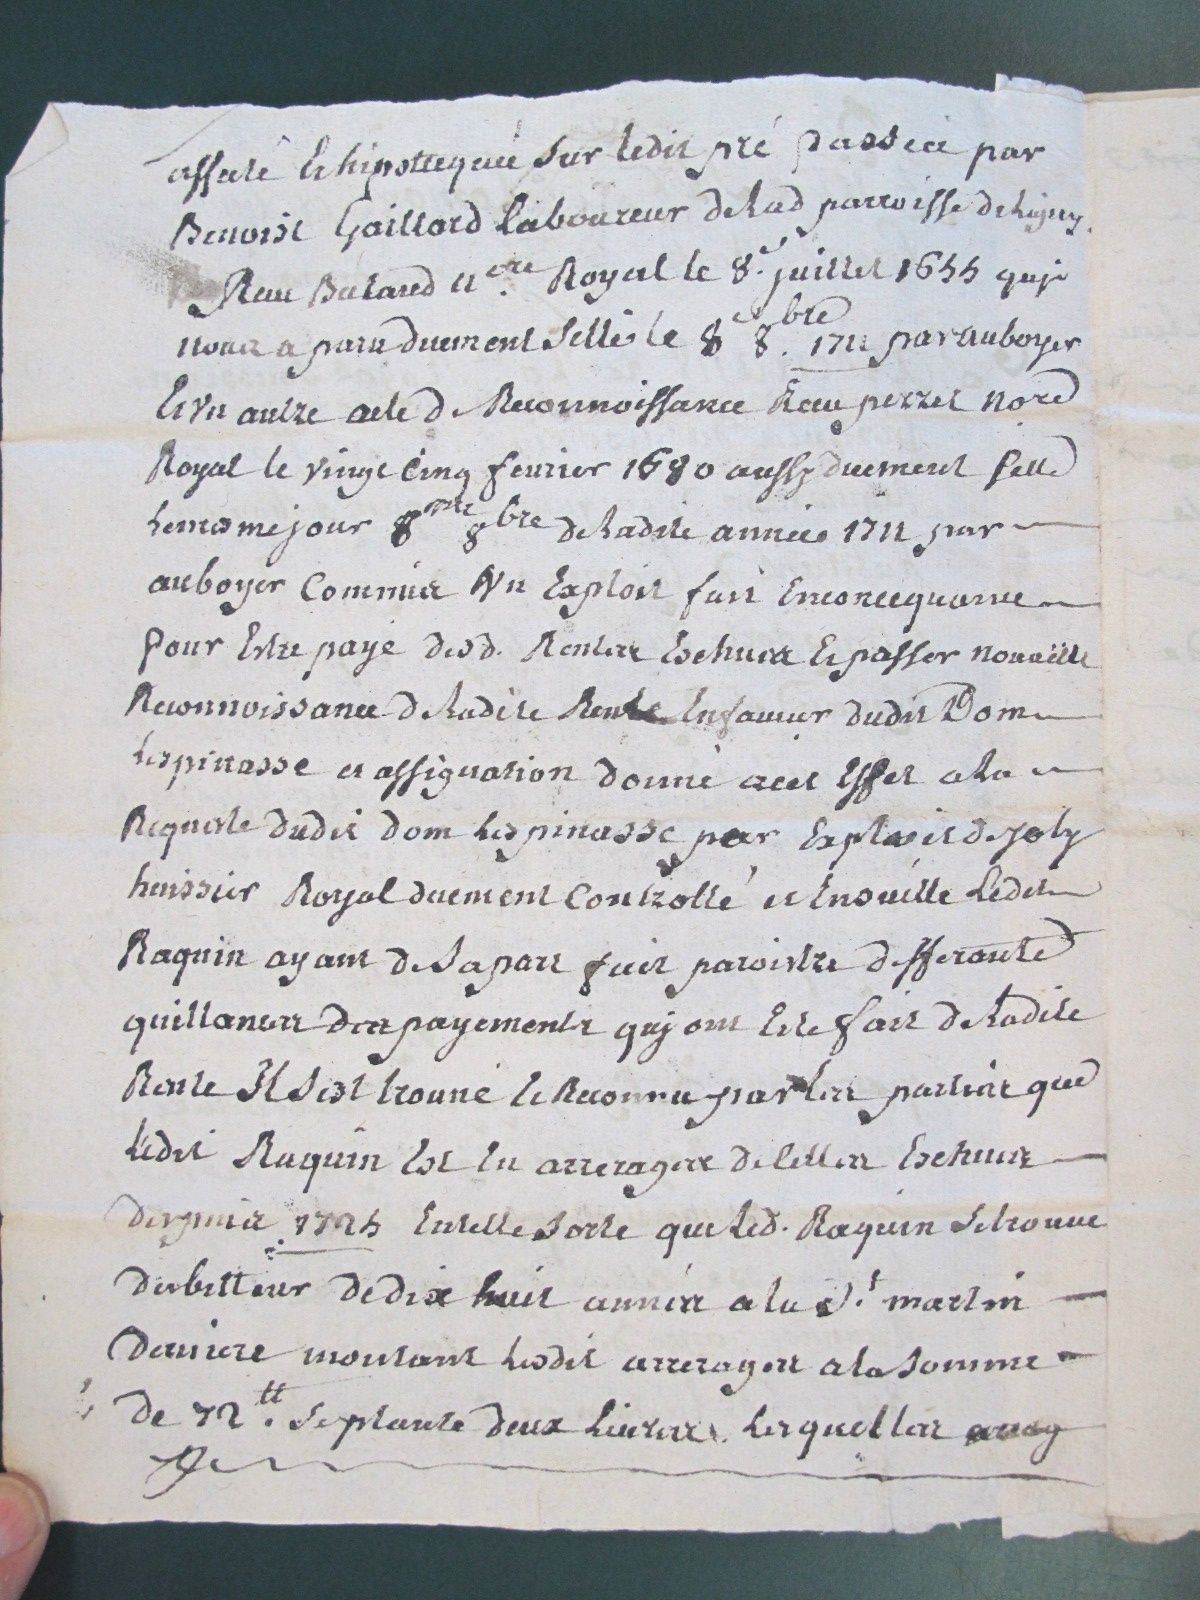 affecté et hipottequée sur ledit pré passée par
Benoist Gaillard laboureur de lad parroisse de ligny
Reau Balard nere Royal le 8e juillet 1655 quj
nous a paru duement sellé le 8e 8bre 1711 par auboyer
et un autre acte de Reconnoissance Reau perret Nore
Royal le vingt cinq feurier 1680 aussy duement sellé
le mesme jour 8me 8bre de ladite année 1711 par
auboyer Commis un Exploit fait En concequance
pour Estre payé desd. Rentes Eschues Et passer nouuelle
Reconnoissance de ladite Rente En faueur dudit Dom
Lespinasse et assignation donné a cet Effet a la
Requeste dudit dom Lespinasse par Exploit de joly
huissier Royal duement Controllé et Ensuitte Ledit
Raquin ayant de sa part fait paroistre differante
quittances des payements quj ont Esté fait de ladite
Rente Il s'est trouué et Reconnu par les parties que
Ledit Raquin Est En arrerages de celles Eschues
depuis 1725 En telle sorte que Led. Raquin se trouue
debitteur de dix huit années a la St martin
derniere montant Lesdit arrerages a la somme
de 72tt. septante deux Liures. Lesquelles